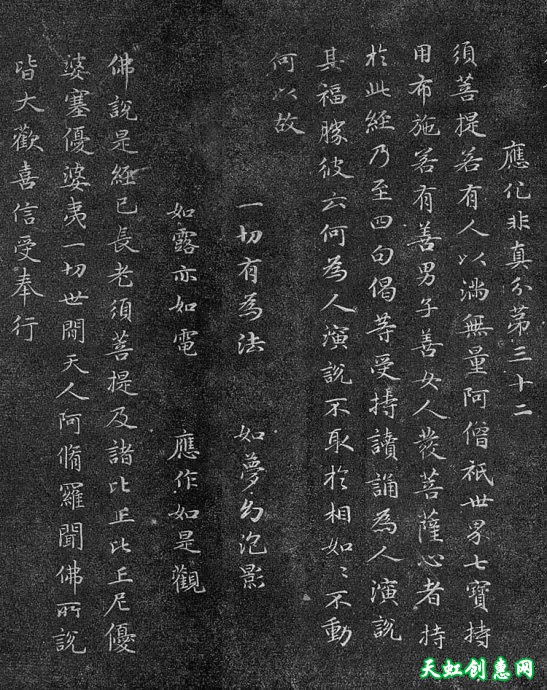 應化非真分第三十二
須菩提若有人以滿無量阿僧祇世界七寶持
用布施若有善男子善女人發菩薩心者持
於此經乃至四句偈等受持讀誦為人演說
其福勝彼云何為人演說不取於相如〻不動
何以故
一切有為法 如夢幻泡影
如露亦如電 應作如是觀
佛說是經已長老須菩提及諸比丘比丘尼優
婆塞優婆夷一切世間天人阿脩羅聞佛所說
皆大歡喜信受奉行
天虹创意网